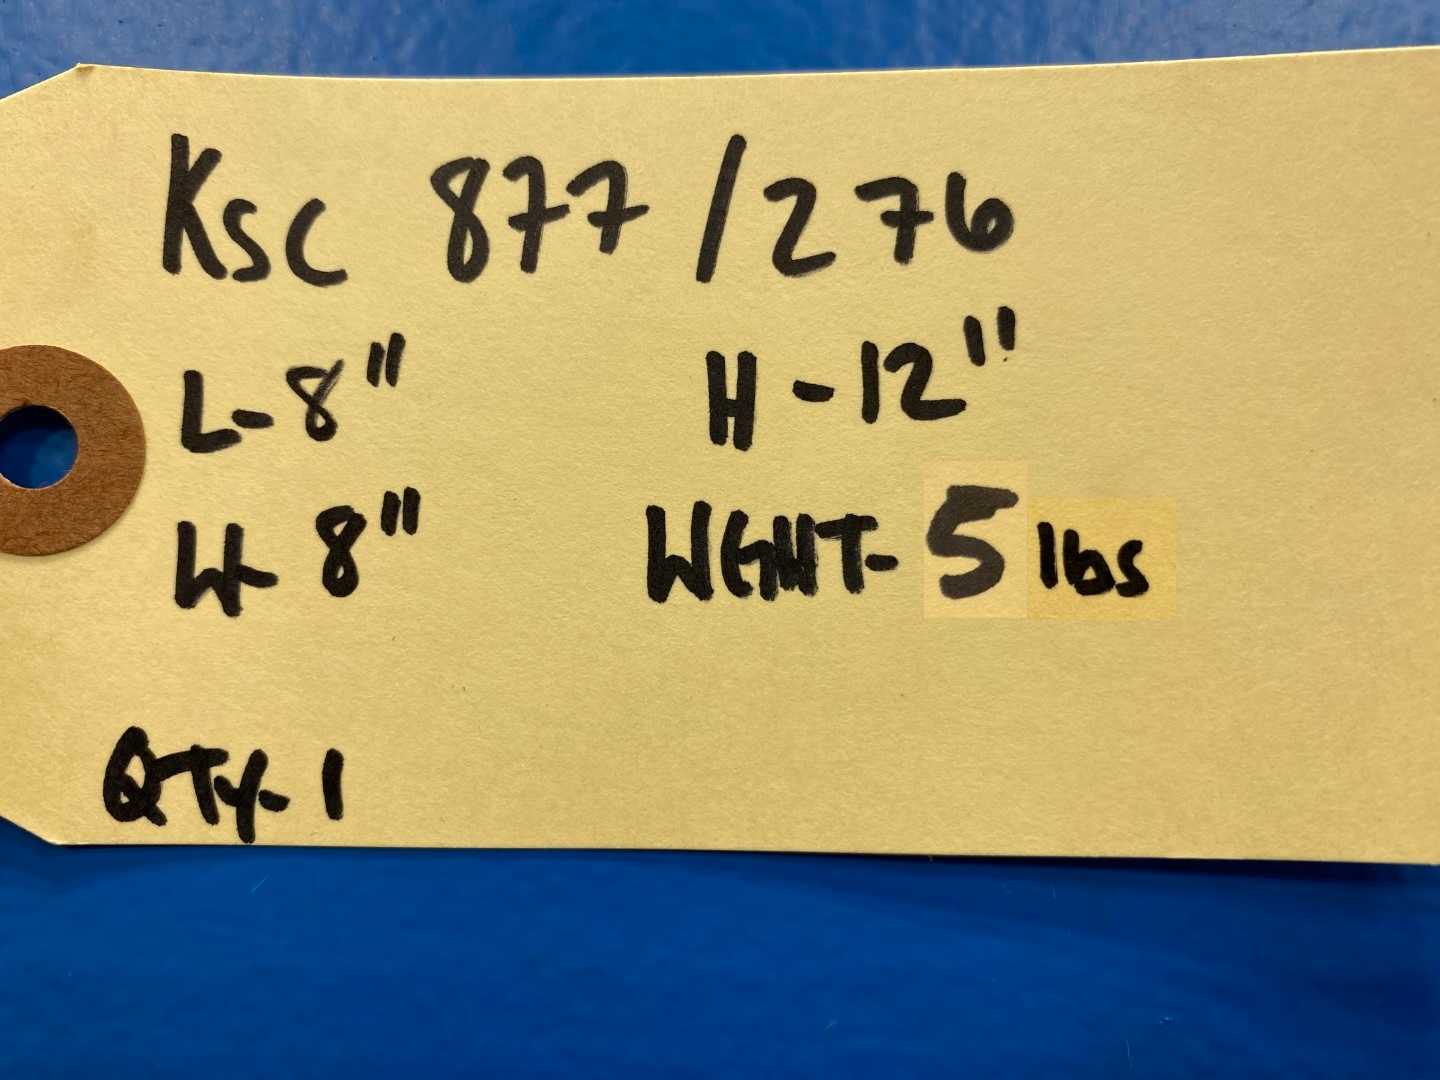 Ksc 877 / 276
L-8" H-12"
W-8" WGHT-5 lbs
QTY-1